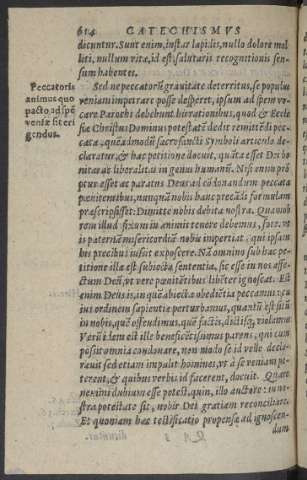 614 CATECHISMVS
ducuntur. Sunt enim, instar lapidis, nullo dolore mol
liti, nullum vita, id est, salutaris recognitionis sen-
sum habentes.
Peccatoris
animus quo
pacto ad spē
veniæ sit eri
gendus.
Sed ne peccatorū gravitate deterritus, se populus
veniam impetrare posse desperet, ipsum ad spem vo-
care Parochi debebunt his rationibus, quod & Eccle
siæ Christus Dominus potestatē dedit remittēdi pec-
cata, quēadmodū sacrosancti Symboli articulo de-
claratur, & hac petitione docuit, quāta esset Dei bo-
nitas ac liberalitas in genus humanū. Nisi enim prō
ptus esset ac paratus Deus ad cōdonandum peccata
pœnitentibus, nunquā nobis hanc precādi formulam
præscripsisset: Dimitte nobis debita nostra. Quamob
rem illud fixum in animis tenere debemus, fore, vt
is paternā misericordiā nobis impertiat, qui ipsam
his precibus iussit exposcere. Nā omnino sub hac pe-
titione illa est subiecta sententia, sic esse in nos affe-
ctum Deū, vt vere pœnitētibus libēter ignoscat. Est
enim Deus is, in quē abiecta obediētia peccamus: cu
ius ordinem sapientiæ perturbamus, quantū est sitū
in nobis, quē offendimus, quē factis, dictisq; violamus
Verū idem est ille beneficētissimus parens, qui cum
possit omnia condonare, non modo se id velle decla-
rauit sed etiam impulit homines, vt à se veniam pe-
terent, & quibus verbis id facerent, docuit. Quare
nemini dubium esse potest, quin, illo auctore: in no-
stra potestate sit, nobis Dei gratiam reconciliare.
Et quoniam hæc testificatio propensæ ad ignoscen-
dum